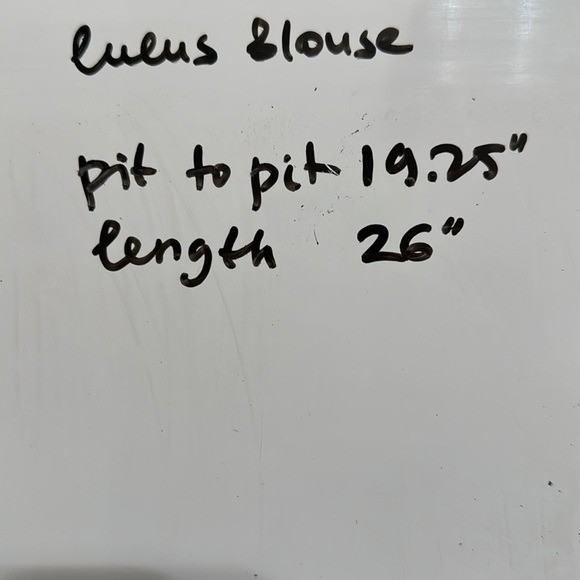 lulus Blouse
pit to pit 19.25"
length 26"